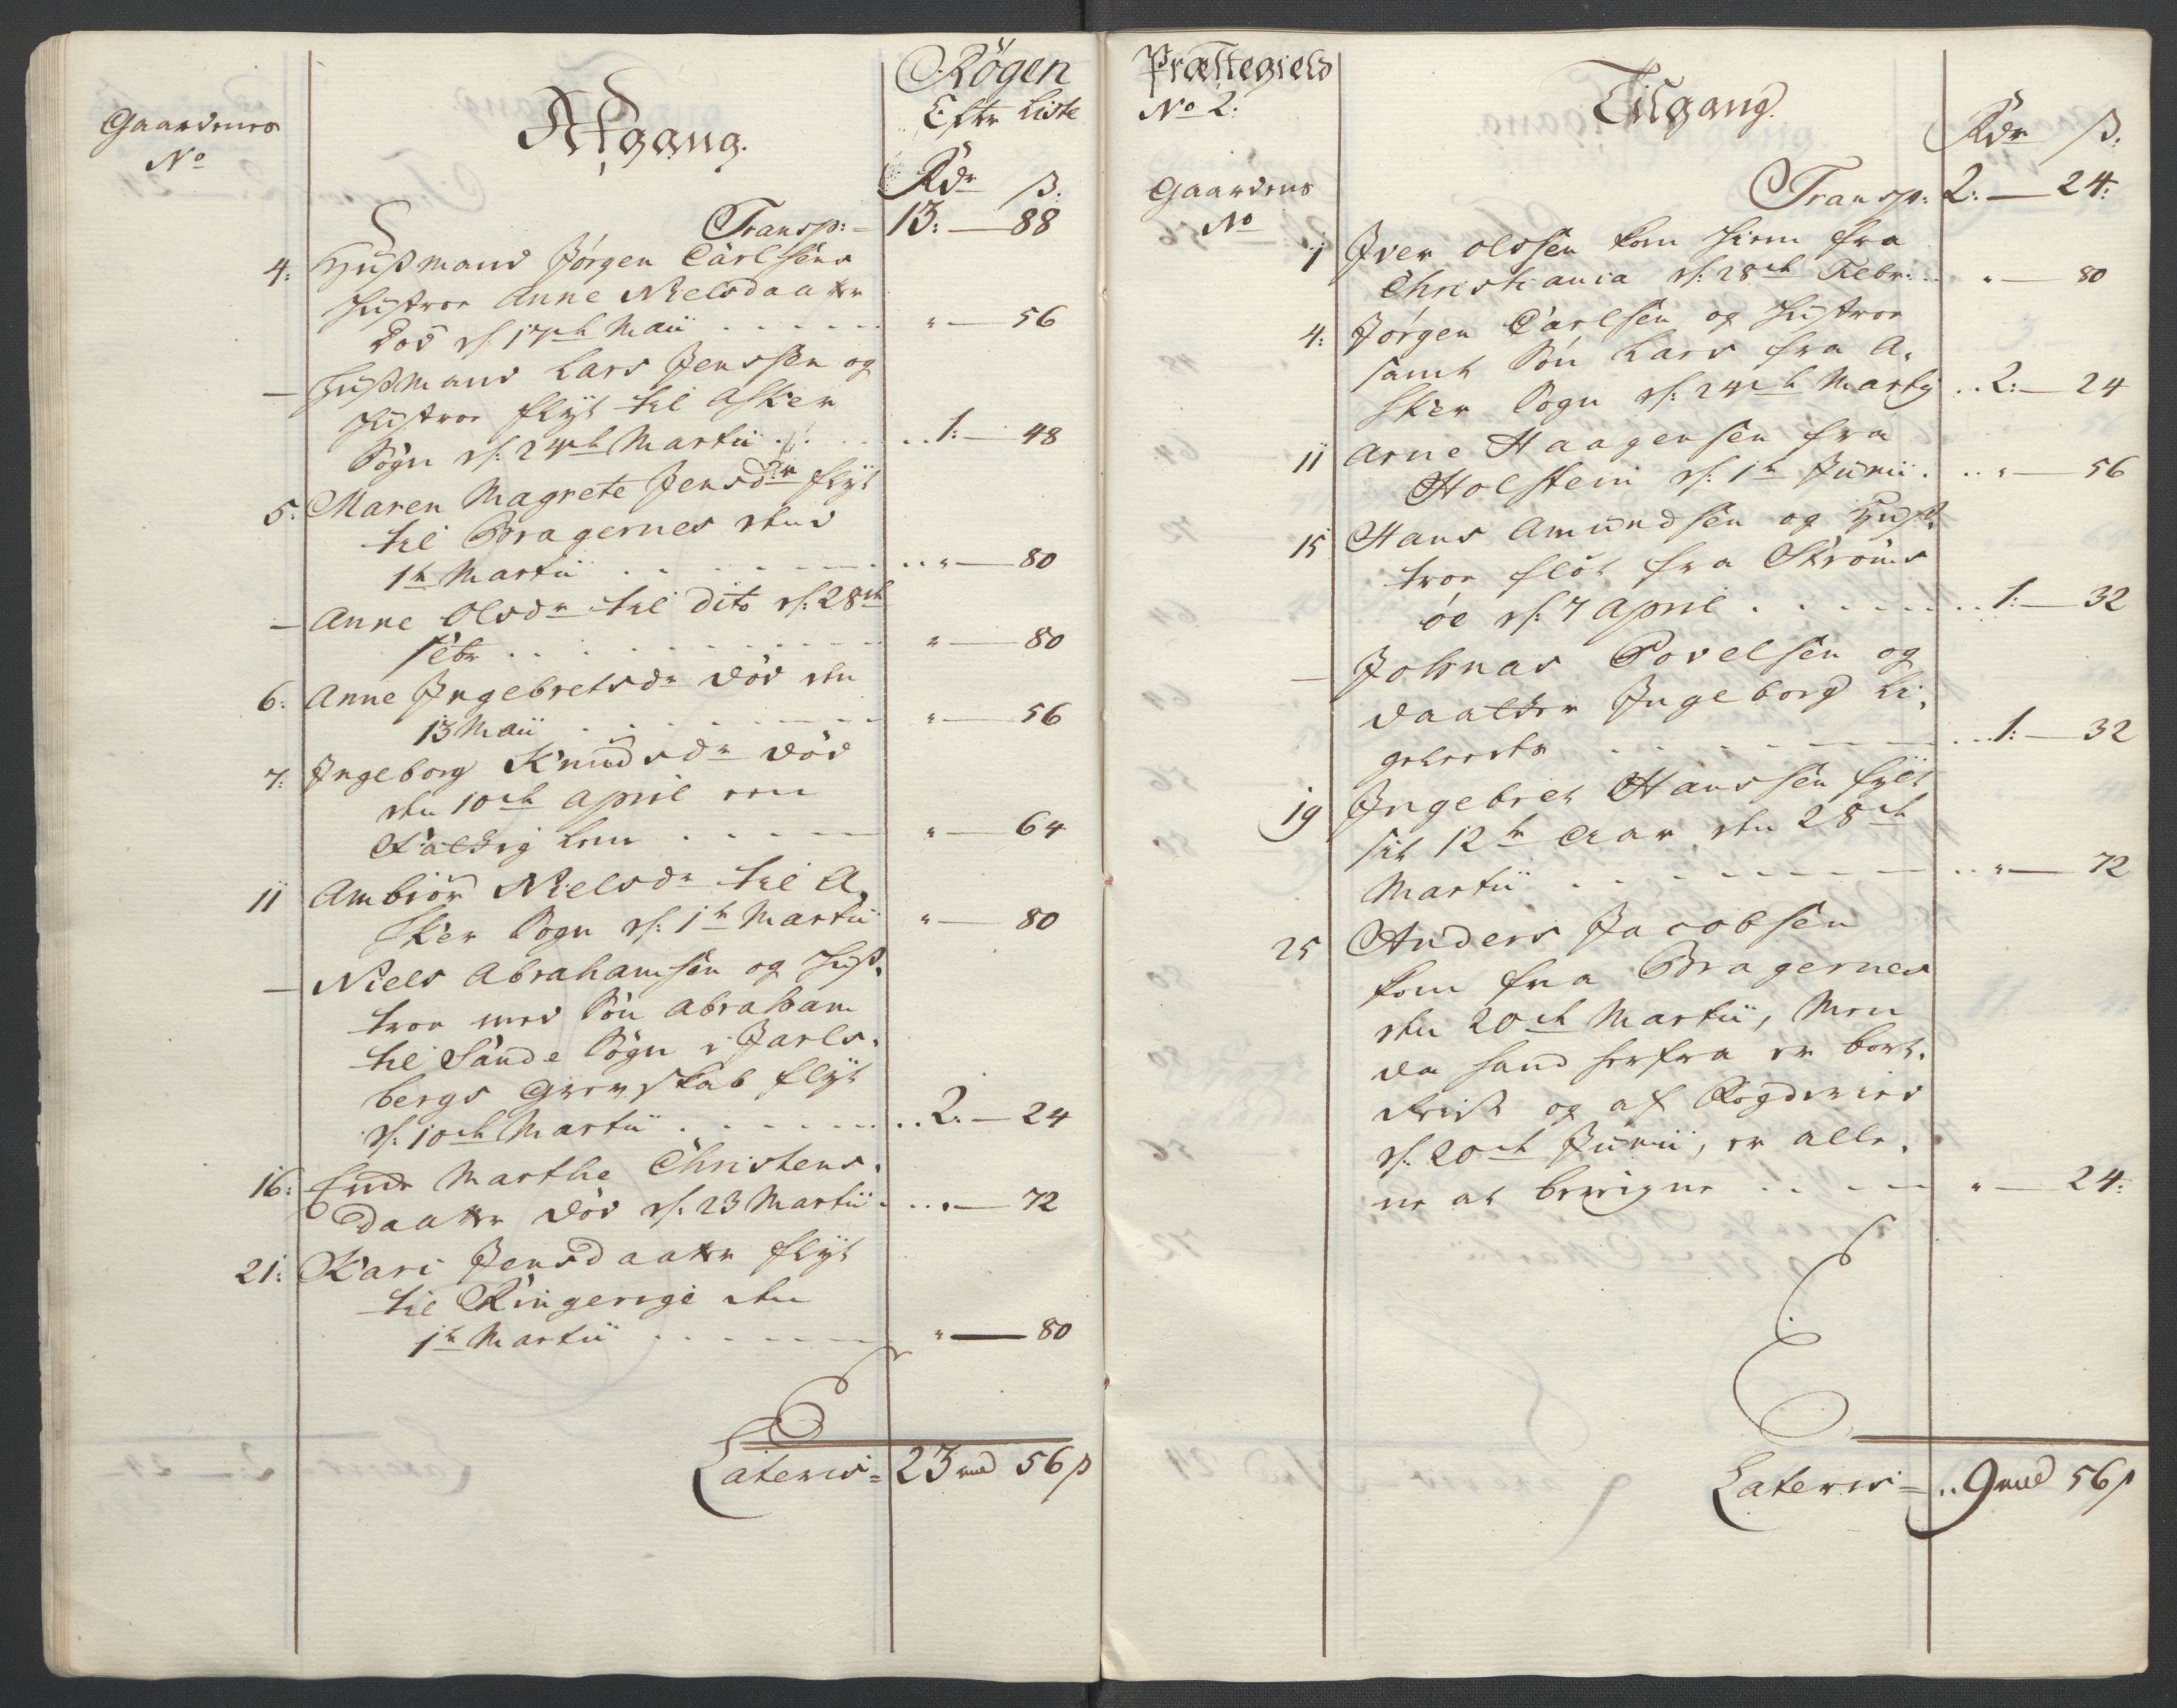 Røgen
Efter Liste
Gaardenes
No
Afgang.
Rdr ß.
Transp: 13: — 88
4: Hußmand Jørgen Carlsens
Hustroe Anne Nielsdaatter
død d: 17de Maii . . . . . " — 56
— Hußmand Lars Jenssen og
Hustroe flyt til Asker
Sogn d: 24de Martii . . . . 1: — 48
5: Maren Magrete Jensdr flyt
til Bragernes den
1te Martii . . . . . " — 80
— Anne Olsdr til dito d: 28de
Febr . . . . . " — 80
6: Anne Ingebretsdr død den
13 Maii . . . . . " — 56
7: Ingeborg Knudsdr død
den 10de April een
Fattig Lem . . . . " — 64
11 Ambiør Nielsdr til A-
sker Sogn d: 1te Martii " — 80
— Niels Abrahamsen og Huß-
troe med Søn Abraham
til Sande Sogn i Jarls-
bergs Grevskab flyt
d: 10de Martii . . . . . 2: — 24
16: Marthe Christens-
daatter død d: 23 Martii . . . " — 72
21: Kari Jensdaatter flyt
til Ringerige den
1te Martii . . . . . " — 80
Lateris = 23 rd 56 ß
Præstegield
No 2:
Tilgang.
Rdr ß.
Gaardens
No
Transp: 2: — 24:
1 Iver Olssen kom hiem fra
Christiania d: 28de Febr: . . " — 80
4: Jørgen Carlsen og Hustroe
samt Søn Lars fra A-
sker Sogn d: 24de Martij . . 2: — 24
11 Arne Haagensen fra
Holstein d: 1te Junii . . . " — 56
15 Hans Amundsen og Huß-
troe fløt fra Strøms
øe d: 7 April . . . . . 1: — 32
— Johnas Povelsen og
daatter Ingeborg li-
geleedes . . . . . 1: — 32
19 Ingebret Hanssen fylt
sit 12te Aar den 28de
Martii . . . . . " — 72
25 Anders Jacobsen
kom fra Bragernes
den 20de Martii, Men
da hand herfra er bort-
reist og af Fogderiet
d: 20de Junii, er alle-
ne at beregne . . . . " — 24:
Lateris = . . 9 rd 56 ß